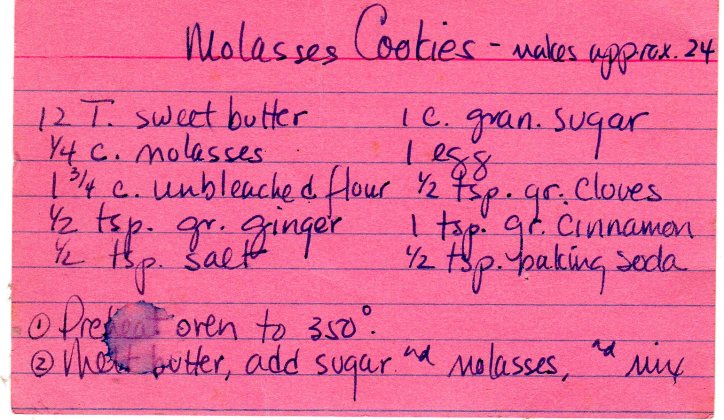 Molasses Cookies - makes approx. 24
12 T. sweet butter 1 c. gran. sugar
1/4 c. molasses 1 egg
1 3/4 c. unbleached flour 1/2 tsp. gr. cloves
1/2 tsp. gr. ginger 1 tsp. gr. cinnamon
1/2 tsp. salt 1/2 tsp. baking soda
① Preheat oven to 350°.
② Melt butter, add sugar and molasses, and mix